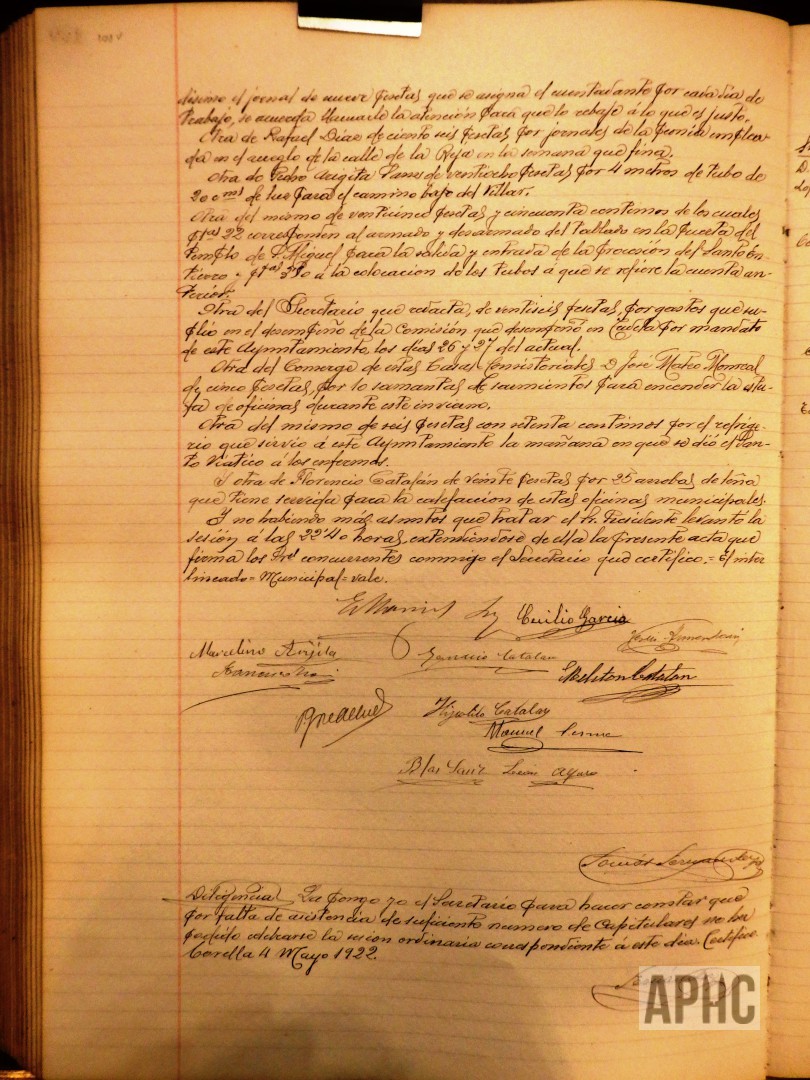 disimo el jornal de nueve pesetas que se asigna el cuentadante por cada día de
trabajo, se acuerda llamarle la atención para que lo rebaje á lo que es justo.
Otra de Rafael Díaz de ciento seis pesetas por jornales de la peonía emplea-
da en el arreglo de la calle de la Reja en la semana que fina.
Otra de Pedro Angita de veintiocho pesetas por 4 metros de tubo de
20 cms de luz para el camino bajo del Villar.
Otra del mismo de venticinco pesetas y cincuenta centimos de los cuales
ptas 22 corresponden al armado y desarmado del tablado en la puerta del
templo de S. Miguel para la salida y entrada de la procesión del Santo En-
tierro y ptas 3'50 á la colocacion de los tubos á que se refiere la cuenta an-
terior.
Otra del Secretario que redacta, de ventiseis pesetas, por gastos que su-
plió en el desempeño de la Comisión que desempeñó en Tudela por mandato
de este Ayuntamiento, los días 26 y 27 del actual.
Otra del Conserge de estas Casas Consistoriales D. José Mateo Monreal
de cinco pesetas, por de sarmientos para encender la estu-
fa de oficinas durante este invierno.
Otra del mismo de seis pesetas con setenta centimos por el refrige-
rio que sirvió á este Ayuntamiento la mañana en que se dió el San-
to Viático á los enfermos.
Y otra de Florencio Catalán de veinte pesetas por 25 arrobas de leña
que tiene servida para la calefaccion de estas oficinas municipales.
Y no habiendo más asuntos que tratar el Sr. Presidente levantó la
sesión á las 22'40 horas, extendiéndose de ella la presente acta que
firma los Sres concurrentes conmigo el Secretario que certifico.= El inter
lineado= Municipal= vale.
Cecilio Garcia
Marcelino
Catalan
Meliton Catalan
Hipolito Catalan
Manuel
Blas Sanz
Diligencia La pongo yo el Secretario para hacer constar que
por falta de asistencia de suficiente numero de Capitulares no ha
podido celebrarse la sesion ordinaria correspondiente á este dia. Certifico
Corella 4 Mayo 1922.
APHC